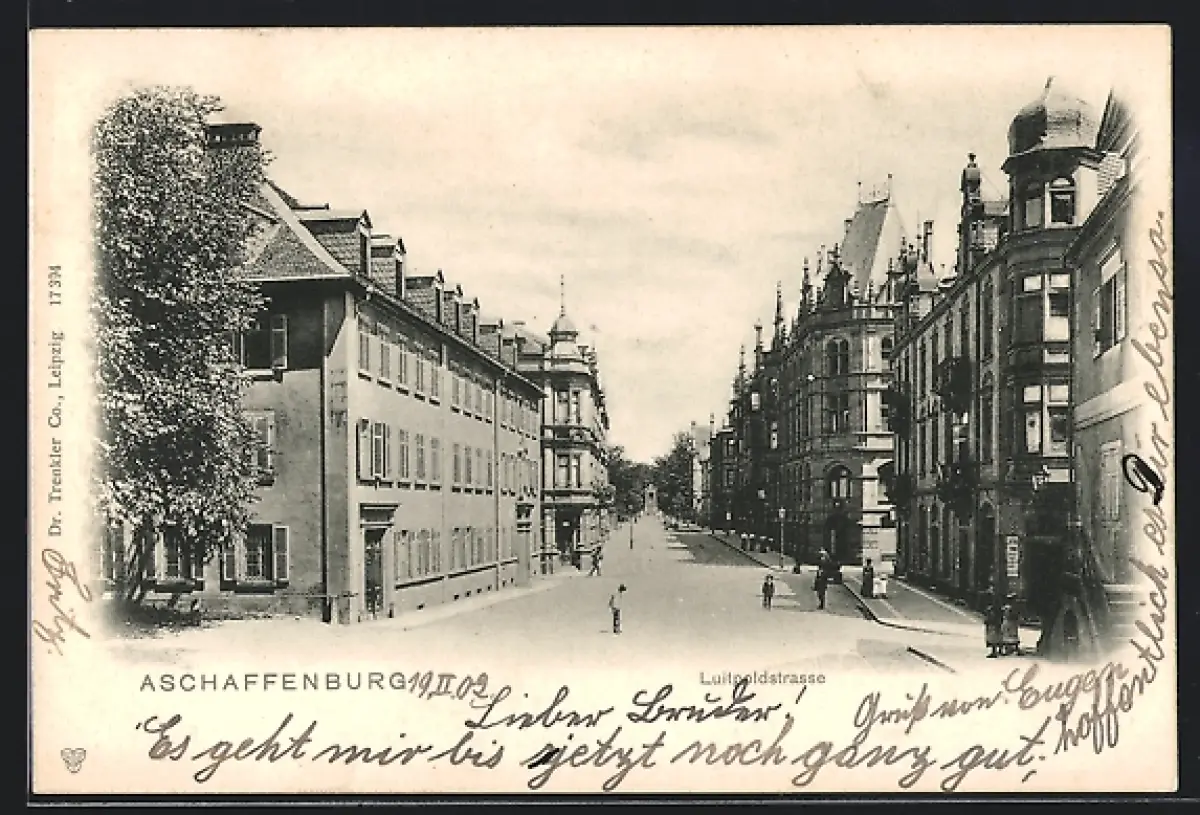 ASCHAFFENBURG 19.II.02
Luitpoldstrasse
Lieber Bruder!
Es geht mir bis jetzt noch ganz gut;
hoffentlich es Dir ebenso.
Gruß von Eugen
Fritz
Dr. Trenkler Co., Leipzig 17 394